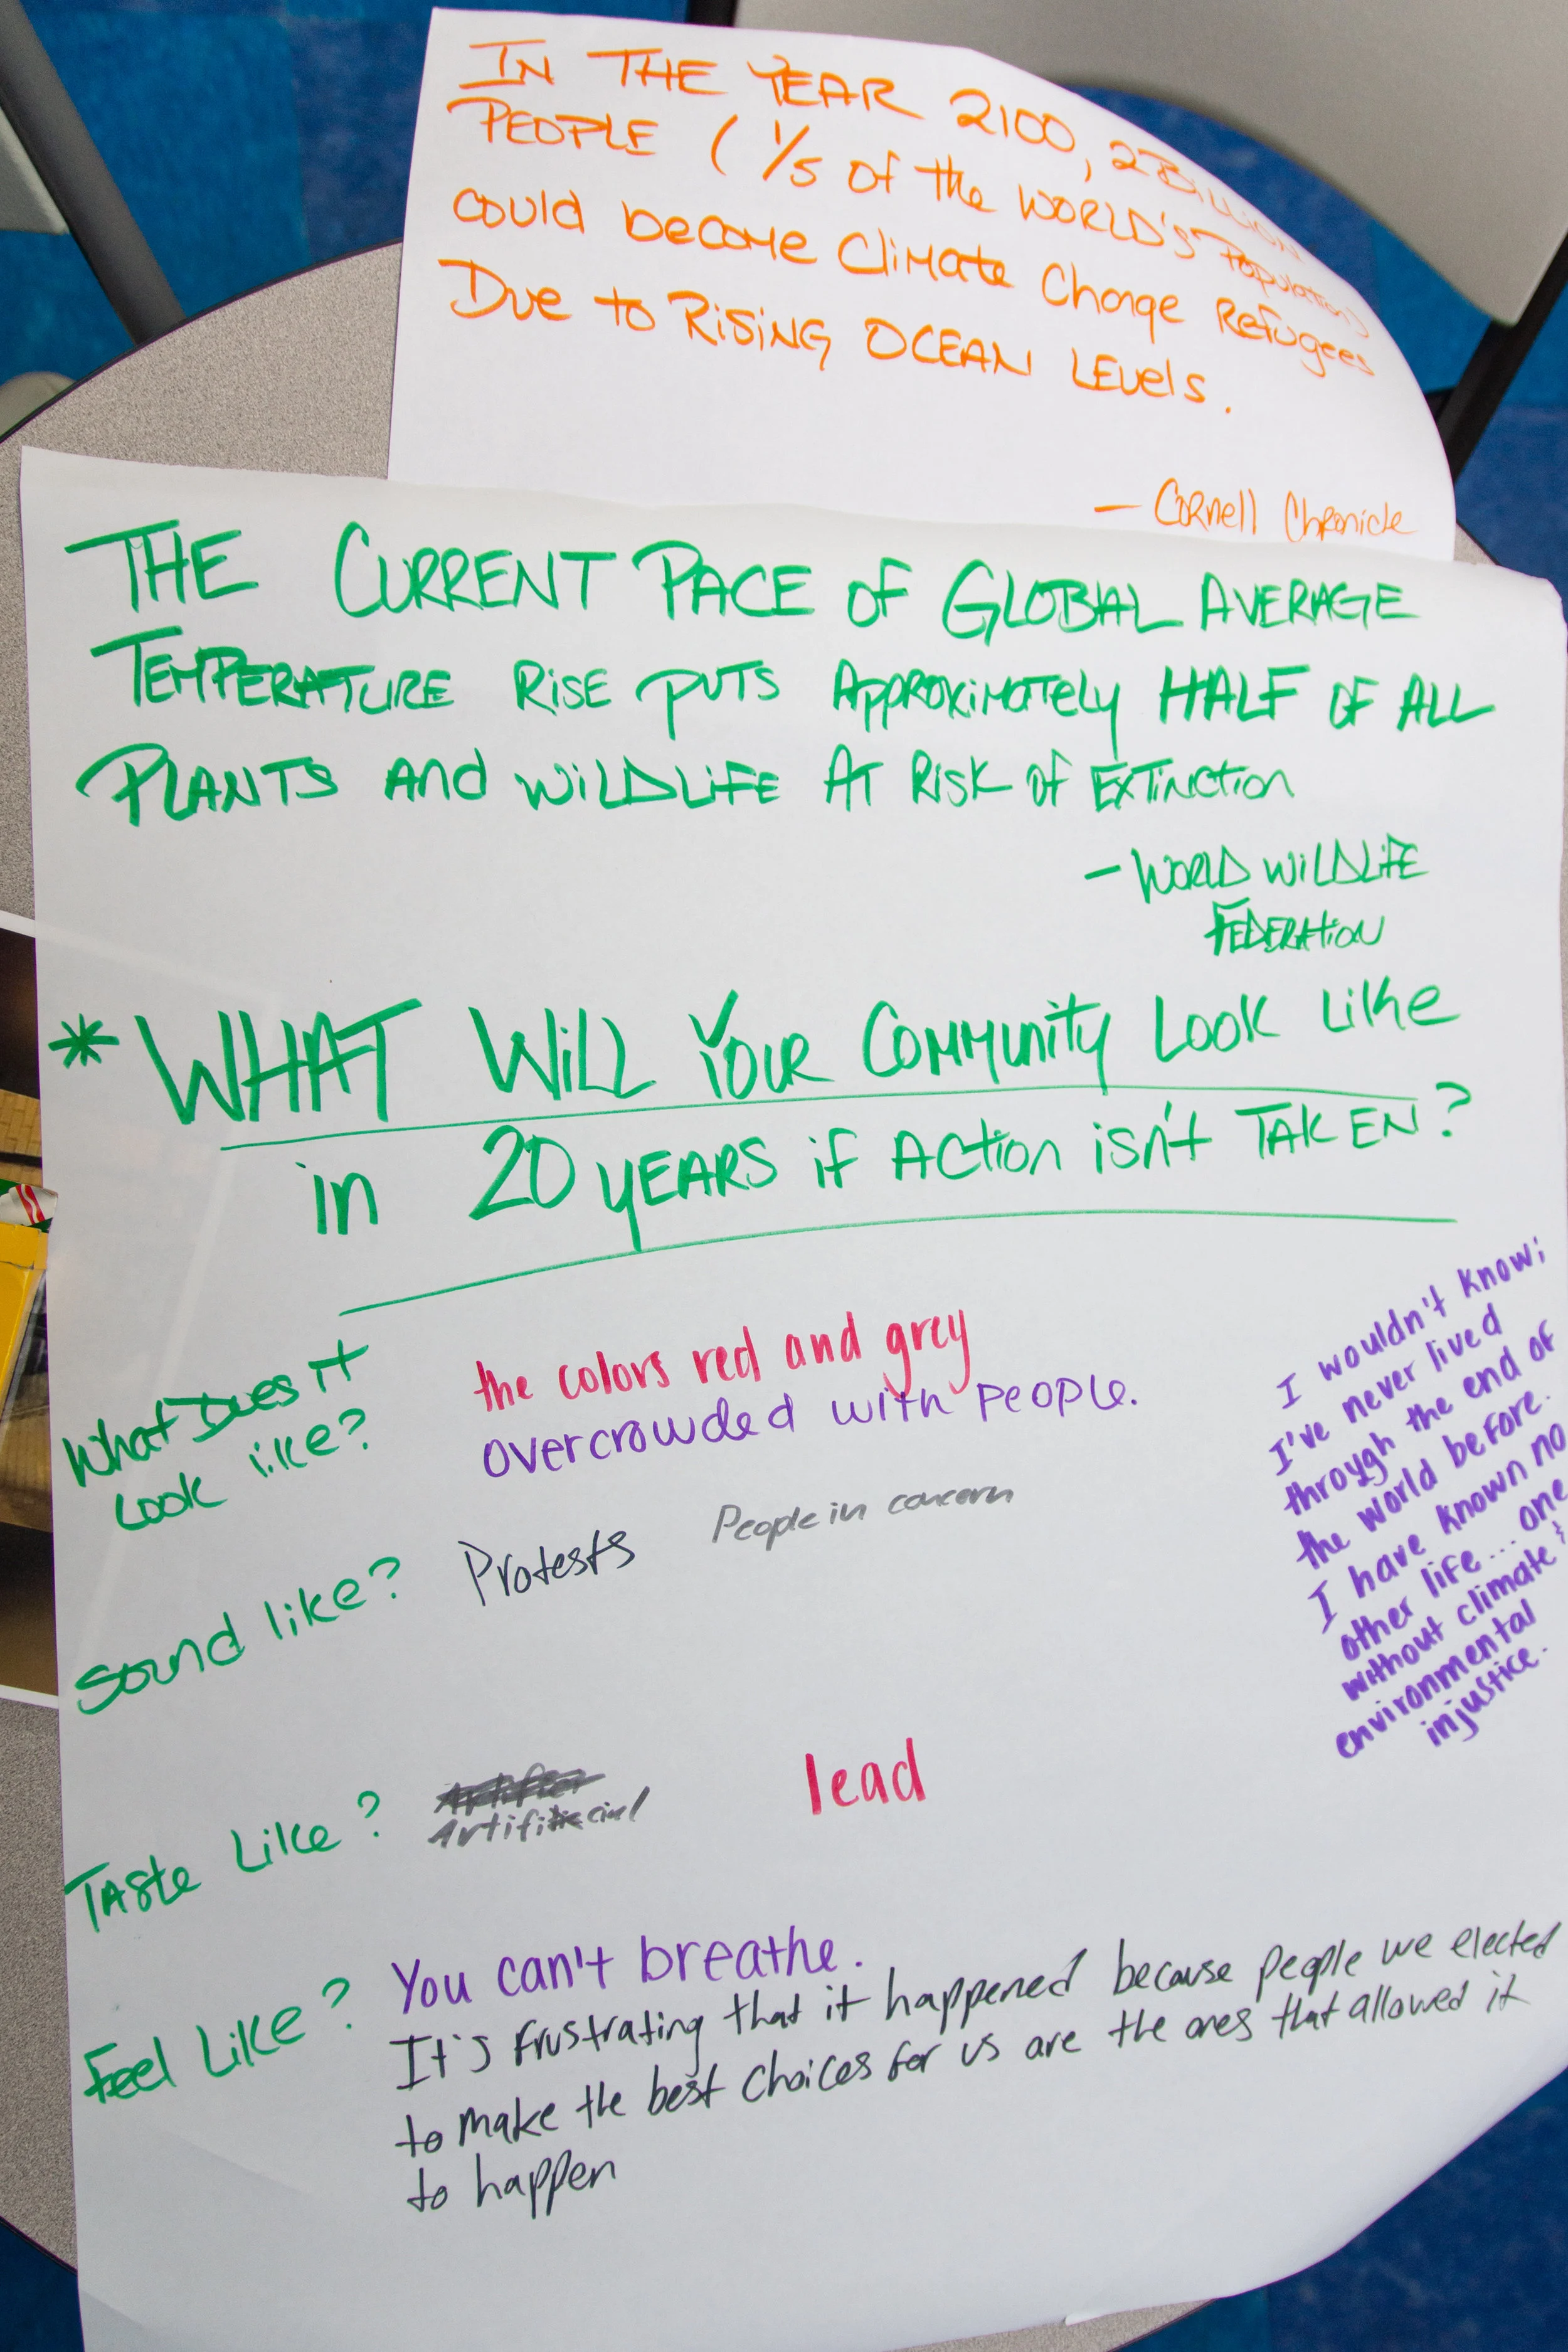 IN THE YEAR 2100, 2 Billion
PEOPLE ( 1/5 of the WORLD's Population)
could become Climate Change Refugees
Due to Rising OCEAN LEvels.
— Cornell Chronicle
THE CURRENT PACE of GLOBAL AVERAGE
TEMPERATURE RISE PUTS Approximately HALF OF ALL
PLANTS And WiLDLiFE AT RISK of EXTinction
— WORLD WiLDLiFE
FEDERATiON
* WHAT WiLL YOUR Community Look Like
in 20 YEARS if Action isn't TAKEN?
What Does it
Look like?
the colors red and grey
overcrowded with people.
Sound like?
Protests
People in concern
I wouldn't know;
I've never lived
through the end of
the world before.
I have known no
other life... one
without climate &
environmental
injustice.
Taste Like?
Artificial
lead
Feel Like?
You can't breathe.
It's frustrating that it happened because people we elected
to make the best choices for us are the ones that allowed it
to happen